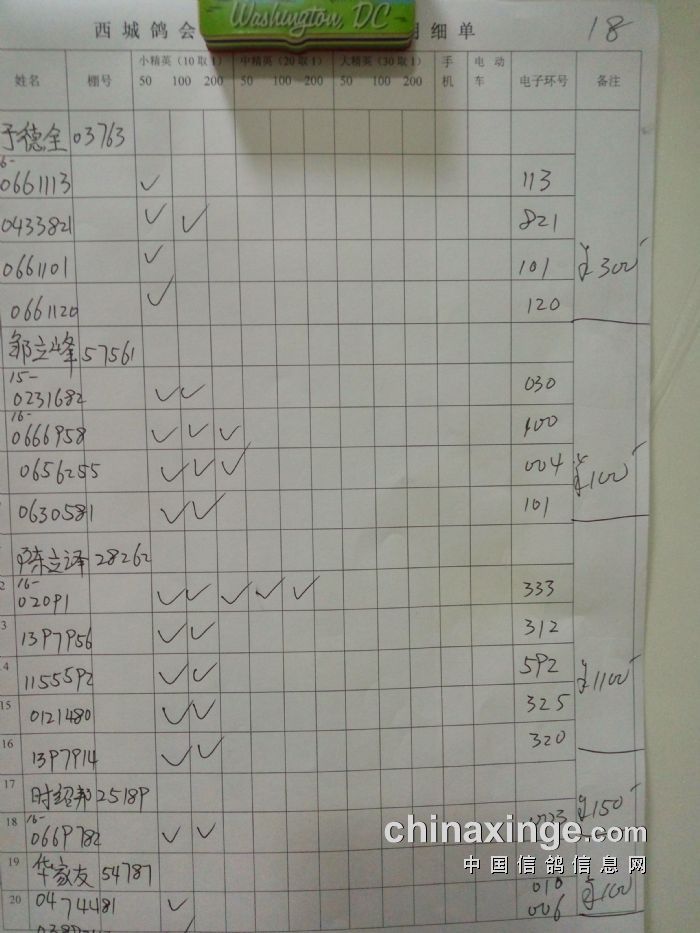 Washington, DC
西城鸽会 明细单 18
姓名 棚号 小精英(10取1) 中精英(20取1) 大精英(30取1) 手机 电动车 电子环号 备注
50 100 200 50 100 200 50 100 200
于德全 03763
16-
0661113 ✓ 113
0433821 ✓ ✓ 821
0661101 ✓ 101 ¥300
0661120 ✓ 120
邹立峰 57561
15-
0231682 ✓ ✓ 030
16-
0666958 ✓ ✓ ✓ 400
0656255 ✓ ✓ ✓ 004 ¥1100
0630581 ✓ ✓ 101
陈立译 28262
12 16-
02091 ✓ ✓ ✓ ✓ ✓ 333
13 1397956 ✓ ✓ 312
14 1155592 ✓ ✓ 592 ¥1100
15 0121480 ✓ ✓ 325
16 1397914 ✓ ✓ 320
17 时绍邦 25189
18 16-
0669782 ✓ ✓ ¥150
chinaxinge.com
中国信鸽信息网
19 华家友 54787
20 0474481 ✓ 010 ¥100
006